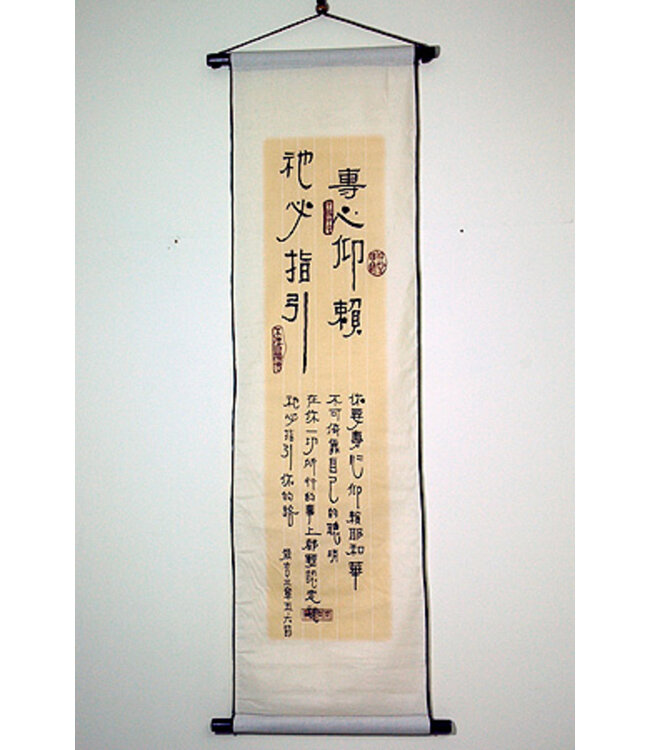 專心仰賴
祂必指引
你要專心仰賴耶和華
不可倚靠自己的聰明
在你一切所行的事上都要認定祂
祂必指引你的路
箴言三章五.六節